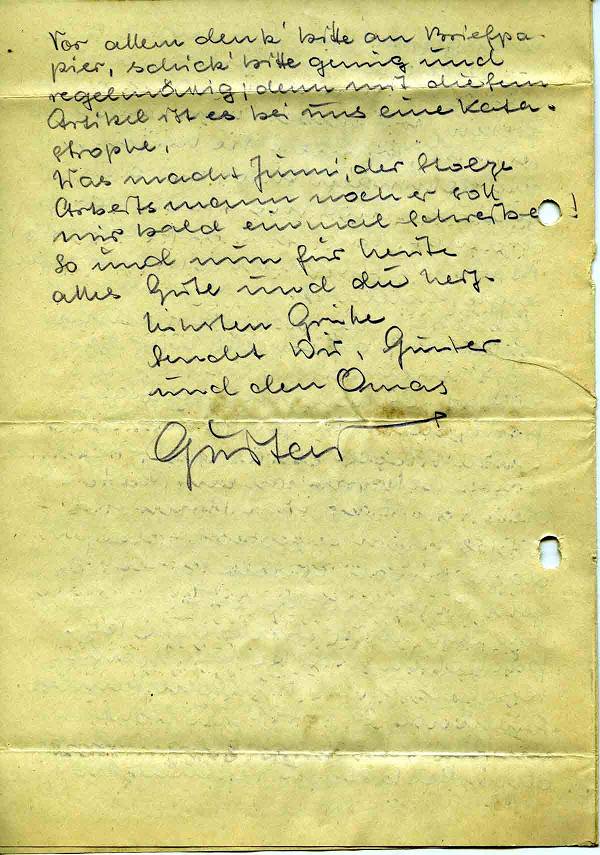 Vor allem denk' bitte an Briefpa-
pier, schick' bitte genug und
regelmäßig; denn mit diesem
Artikel ist es bei uns eine Kata-
strophe.
Was macht der stolze
Arbeitsmann noch er soll
mir bald einmal schreiben!
So und nun für heute
alles Gute und die herz-
lichsten Grüße
sendet Dir, Günter
und den Omas
Gustav